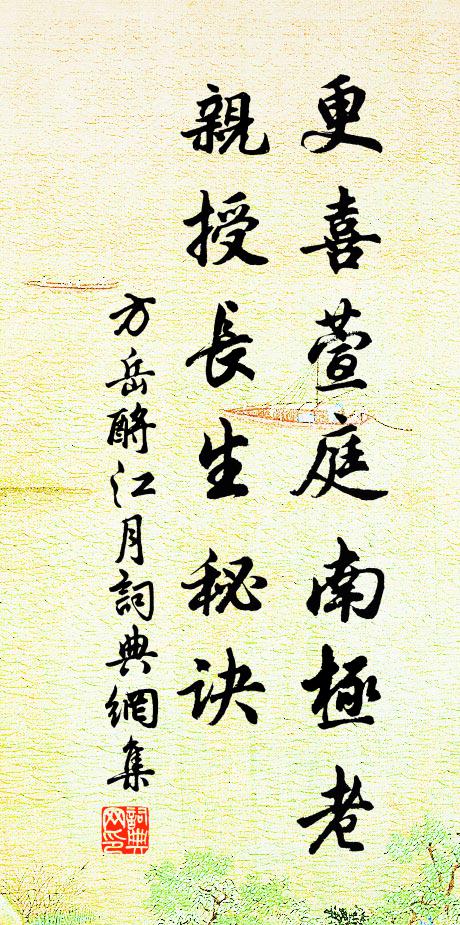 更喜萱庭南極老
親授長生秘訣
方岳酹江月詞典網集
詞典
网印